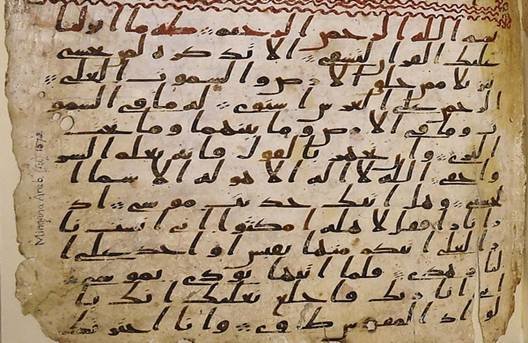 بسم الله الرحمن الرحيم طه ما انزلنا
عليك القران لتشقى الا تذكرة لمن يخشى
تنزيلا ممن خلق الارض والسموت العلى
الرحمن على العرش استوى له ما في السمو
ت وما في الارض وما بينهما وما تحت
الثرى وان تجهر بالقول فانه يعلم السر
واخفى الله لا اله الا هو له الاسما ا
لحسنى وهل اتيك حديث موسى اذ
را نارا فقل لاهله امكثوا اني انست نا
را لعلي اتيكم منها بقبس او اجد على ا
لنار هدى فلما اتيها نودي يموسى
اني انا ربك فاخلع نعليك انك با
لواد المقدس طوى وانا اخترتك
Mingana Arab 1572